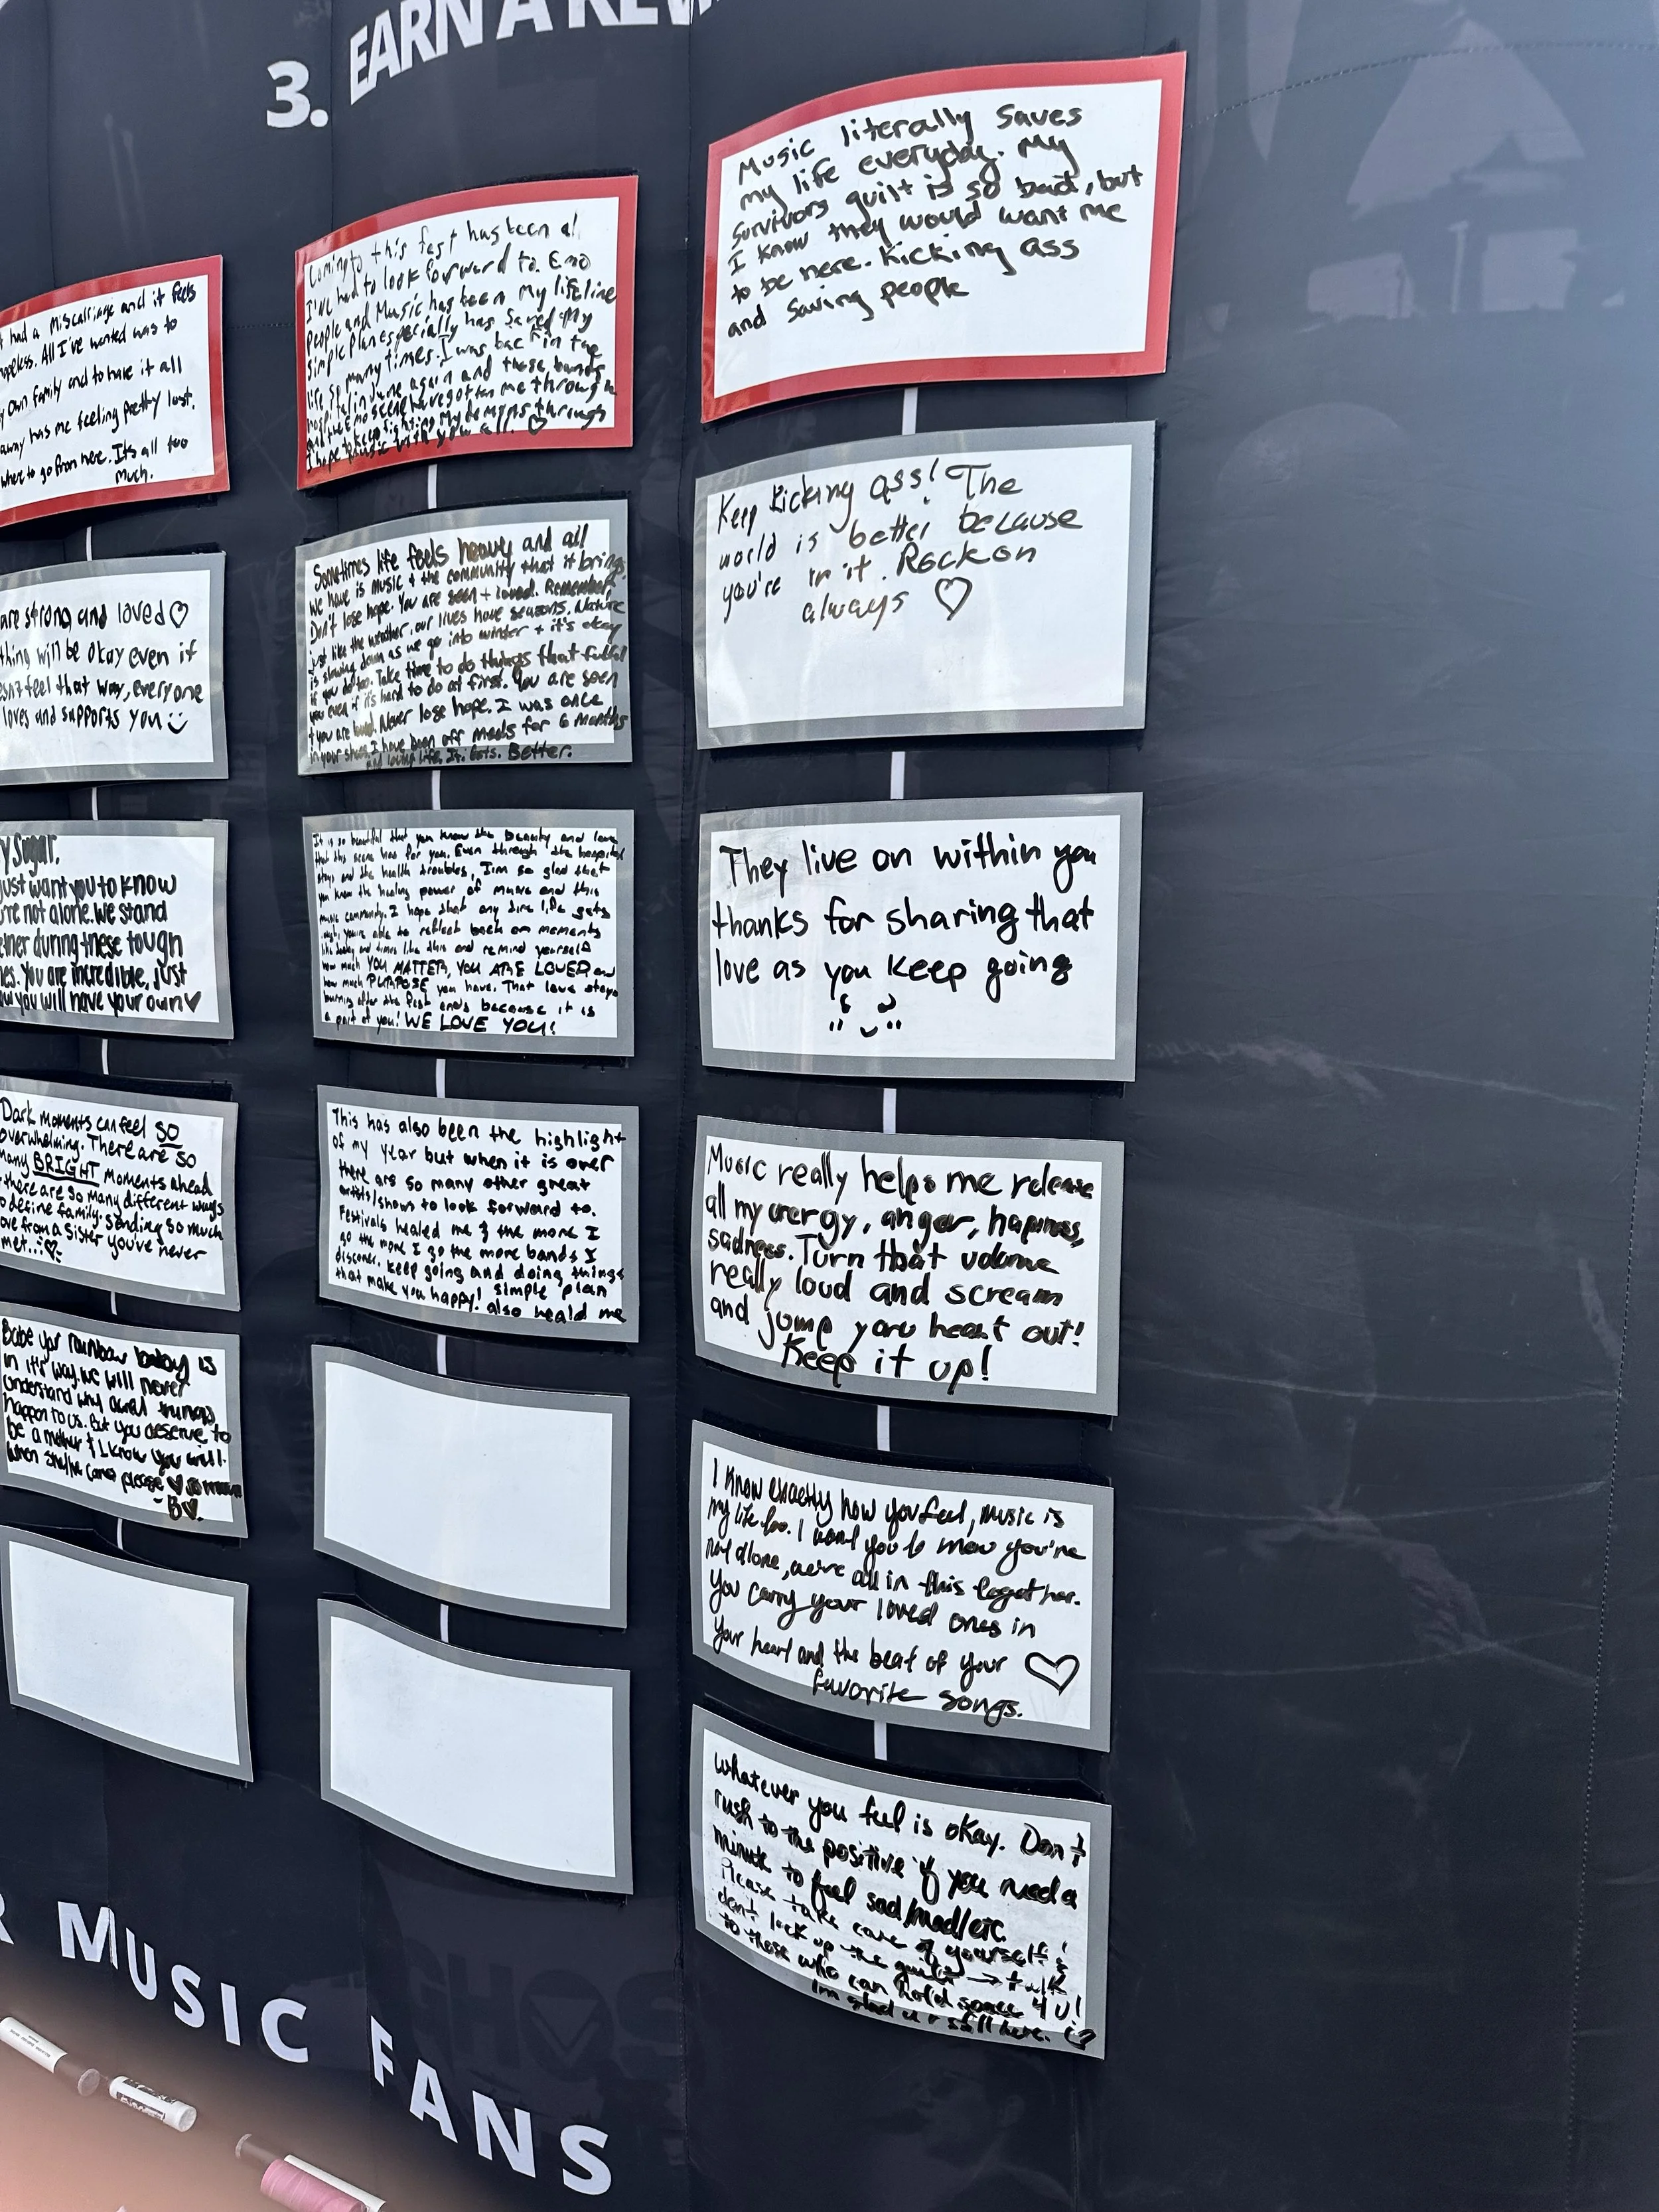 3. EARN A REW
t had a Miscarriage and it feels
hopeless. All I've wanted was to
y own family and to have it all
away has me feeling pretty lost.
where to go from here. It's all too
much.
are strong and loved ♡
thing will be okay even if
esn't feel that way, everyone
loves and supports you
y Sugar.
just want you to know
u're not alone. We stand
ether during these tough
es. You are incredible, just
ow you will have your own ♥
Dark moments can feel SO
overwhelming. There are so
many BRIGHT moments ahead
there are so many different ways
to define family. Sending so much
ove from a sister you've never
met...♡
Babe your rainbow baby is
in it's way. We will never
understand why cruel things
happen to us. But you deserve to
be a mother & I know you will.
When she/he comes please ♥ so much
-B♡.
Coming to this fest has been al
I've had to look forward to. Emo
People and Music has been My lifeline
Simple Plan especially has saved My
life so many times. I was back in the
hospital in June again and those bands
and the Emo scene have gotten me through
to keep fighting My demons through
I hope music with you all. ♡
Sometimes life feels heavy and all
we have is music + the community that it brings.
Don't lose hope. You are seen + loved. Remember,
just like the weather, our lives have seasons. Nature
is slowing down as we go into winter + it's okay
if you do too. Take time to do things that fulfill
you even if it's hard to do at first. You are seen
+ you are loved. Never lose hope. I was once
in your shoes. I have been off meds for 6 months
and loving life. It. Gets. Better.
It is so beautiful that you know the beauty and love
that this scene has for you. Even through the hospital
stays and the health troubles, I'm so glad that
you know the healing power of music and this
music community. I hope that any time life gets
tough, you're able to reflect back on moments
like today and times like this and remind yourself
how much YOU MATTER, YOU ARE LOVED and
how much PURPOSE you have. That love stays
burning after the fest ends because it is
a part of you! WE LOVE YOU!
This has also been the highlight
of my year but when it is over
there are so many other great
artists/shows to look forward to.
Festivals healed me & the more I
go the more I go the more bands I
discover. Keep going and doing things
that make you happy! simple plan
also heald me
Music literally saves
my life everyday. My
survivors guilt is so bad, but
I know they would want me
to be here. Kicking ass
and saving people
Keep kicking ass! The
world is better because
you're in it. Rock on
always ♡
They live on within you
thanks for sharing that
love as you keep going
Music really helps me release
all my energy, anger, happiness,
sadness. Turn that volume
really loud and scream
and jump your heart out!
Keep it up!
I know exactly how you feel, music is
my life too. I want you to know you're
not alone, we're all in this together.
You carry your loved ones in
your heart and the beat of your
favorite songs. ♡
Whatever you feel is okay. Don't
rush to the positive if you need a
minute to feel sad/mad/etc.
Please take care of yourself &
don't lock up the guilt → talk
to those who can hold space 4 U!
I'm glad u r still here. ♡
R MUSIC FANS